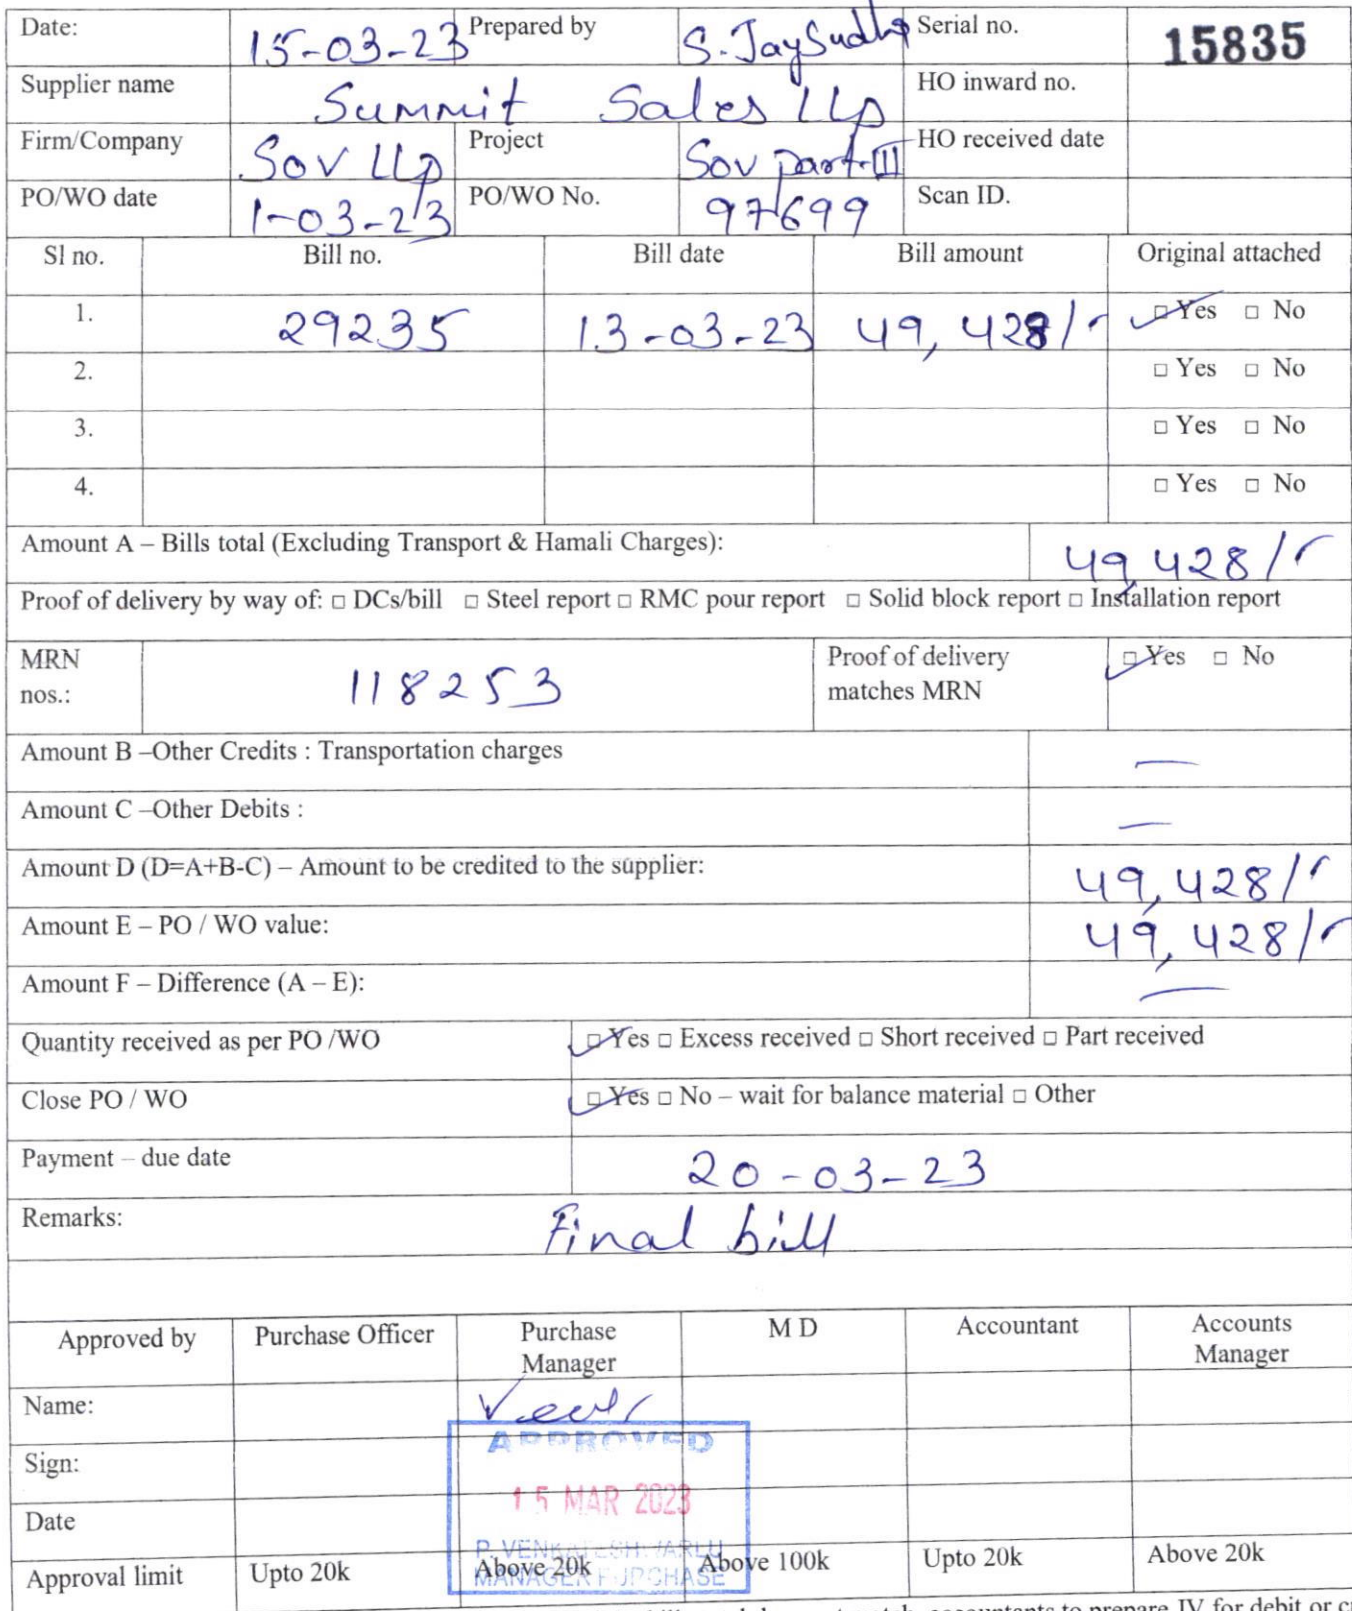 Date: 15-03-23 Prepared by S. JaySudha Serial no. 15835
Supplier name Summit Sales LLP HO inward no.
Firm/Company Sov LLP Project Sov part-III HO received date
PO/WO date 1-03-23 PO/WO No. 97699 Scan ID.
Sl no. Bill no. Bill date Bill amount Original attached
1. 29235 13-03-23 49,428/- ☑ Yes □ No
2. □ Yes □ No
3. □ Yes □ No
4. □ Yes □ No
Amount A – Bills total (Excluding Transport & Hamali Charges): 49,428/-
Proof of delivery by way of: □ DCs/bill □ Steel report □ RMC pour report □ Solid block report □ Installation report
MRN nos.: 118253 Proof of delivery matches MRN ☑ Yes □ No
Amount B –Other Credits : Transportation charges —
Amount C –Other Debits : —
Amount D (D=A+B-C) – Amount to be credited to the supplier: 49,428/-
Amount E – PO / WO value: 49,428/-
Amount F – Difference (A – E): —
Quantity received as per PO /WO ☑ Yes □ Excess received □ Short received □ Part received
Close PO / WO ☑ Yes □ No – wait for balance material □ Other
Payment – due date 20-03-23
Remarks: Final bill
Approved by Purchase Officer Purchase Manager M D Accountant Accounts Manager
Name:
APPROVED
Sign:
15 MAR 2023
Date
P. VENKATESHWARLU
MANAGER PURCHASE
Approval limit Upto 20k Above 20k Above 100k Upto 20k Above 20k
accountants to prepare JV for debit or